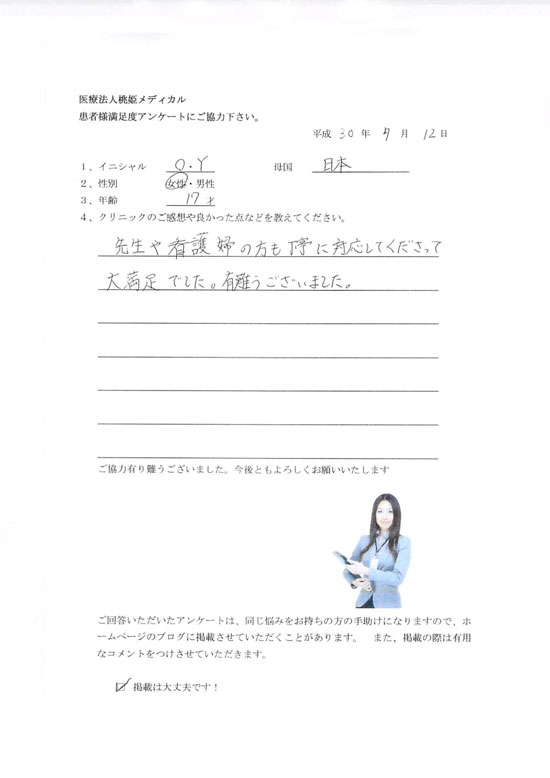 医療法人桃姫メディカル
患者様満足度アンケートにご協力下さい。
平成 30 年 7 月 12 日
1、イニシャル O.Y 母国 日本
2、性別 女性・男性
3、年齢 17 才
4、クリニックのご感想や良かった点などを教えてください。
先生や看護婦の方も丁寧に対応してくださって
大満足でした。有難うございました。
ご協力有り難うございました。今後ともよろしくお願いいたします
ご回答いただいたアンケートは、同じ悩みをお持ちの方の手助けになりますので、ホ
ームページのブログに掲載させていただくことがあります。 また、掲載の際は有用
なコメントをつけさせていただきます。
☑ 掲載は大丈夫です！